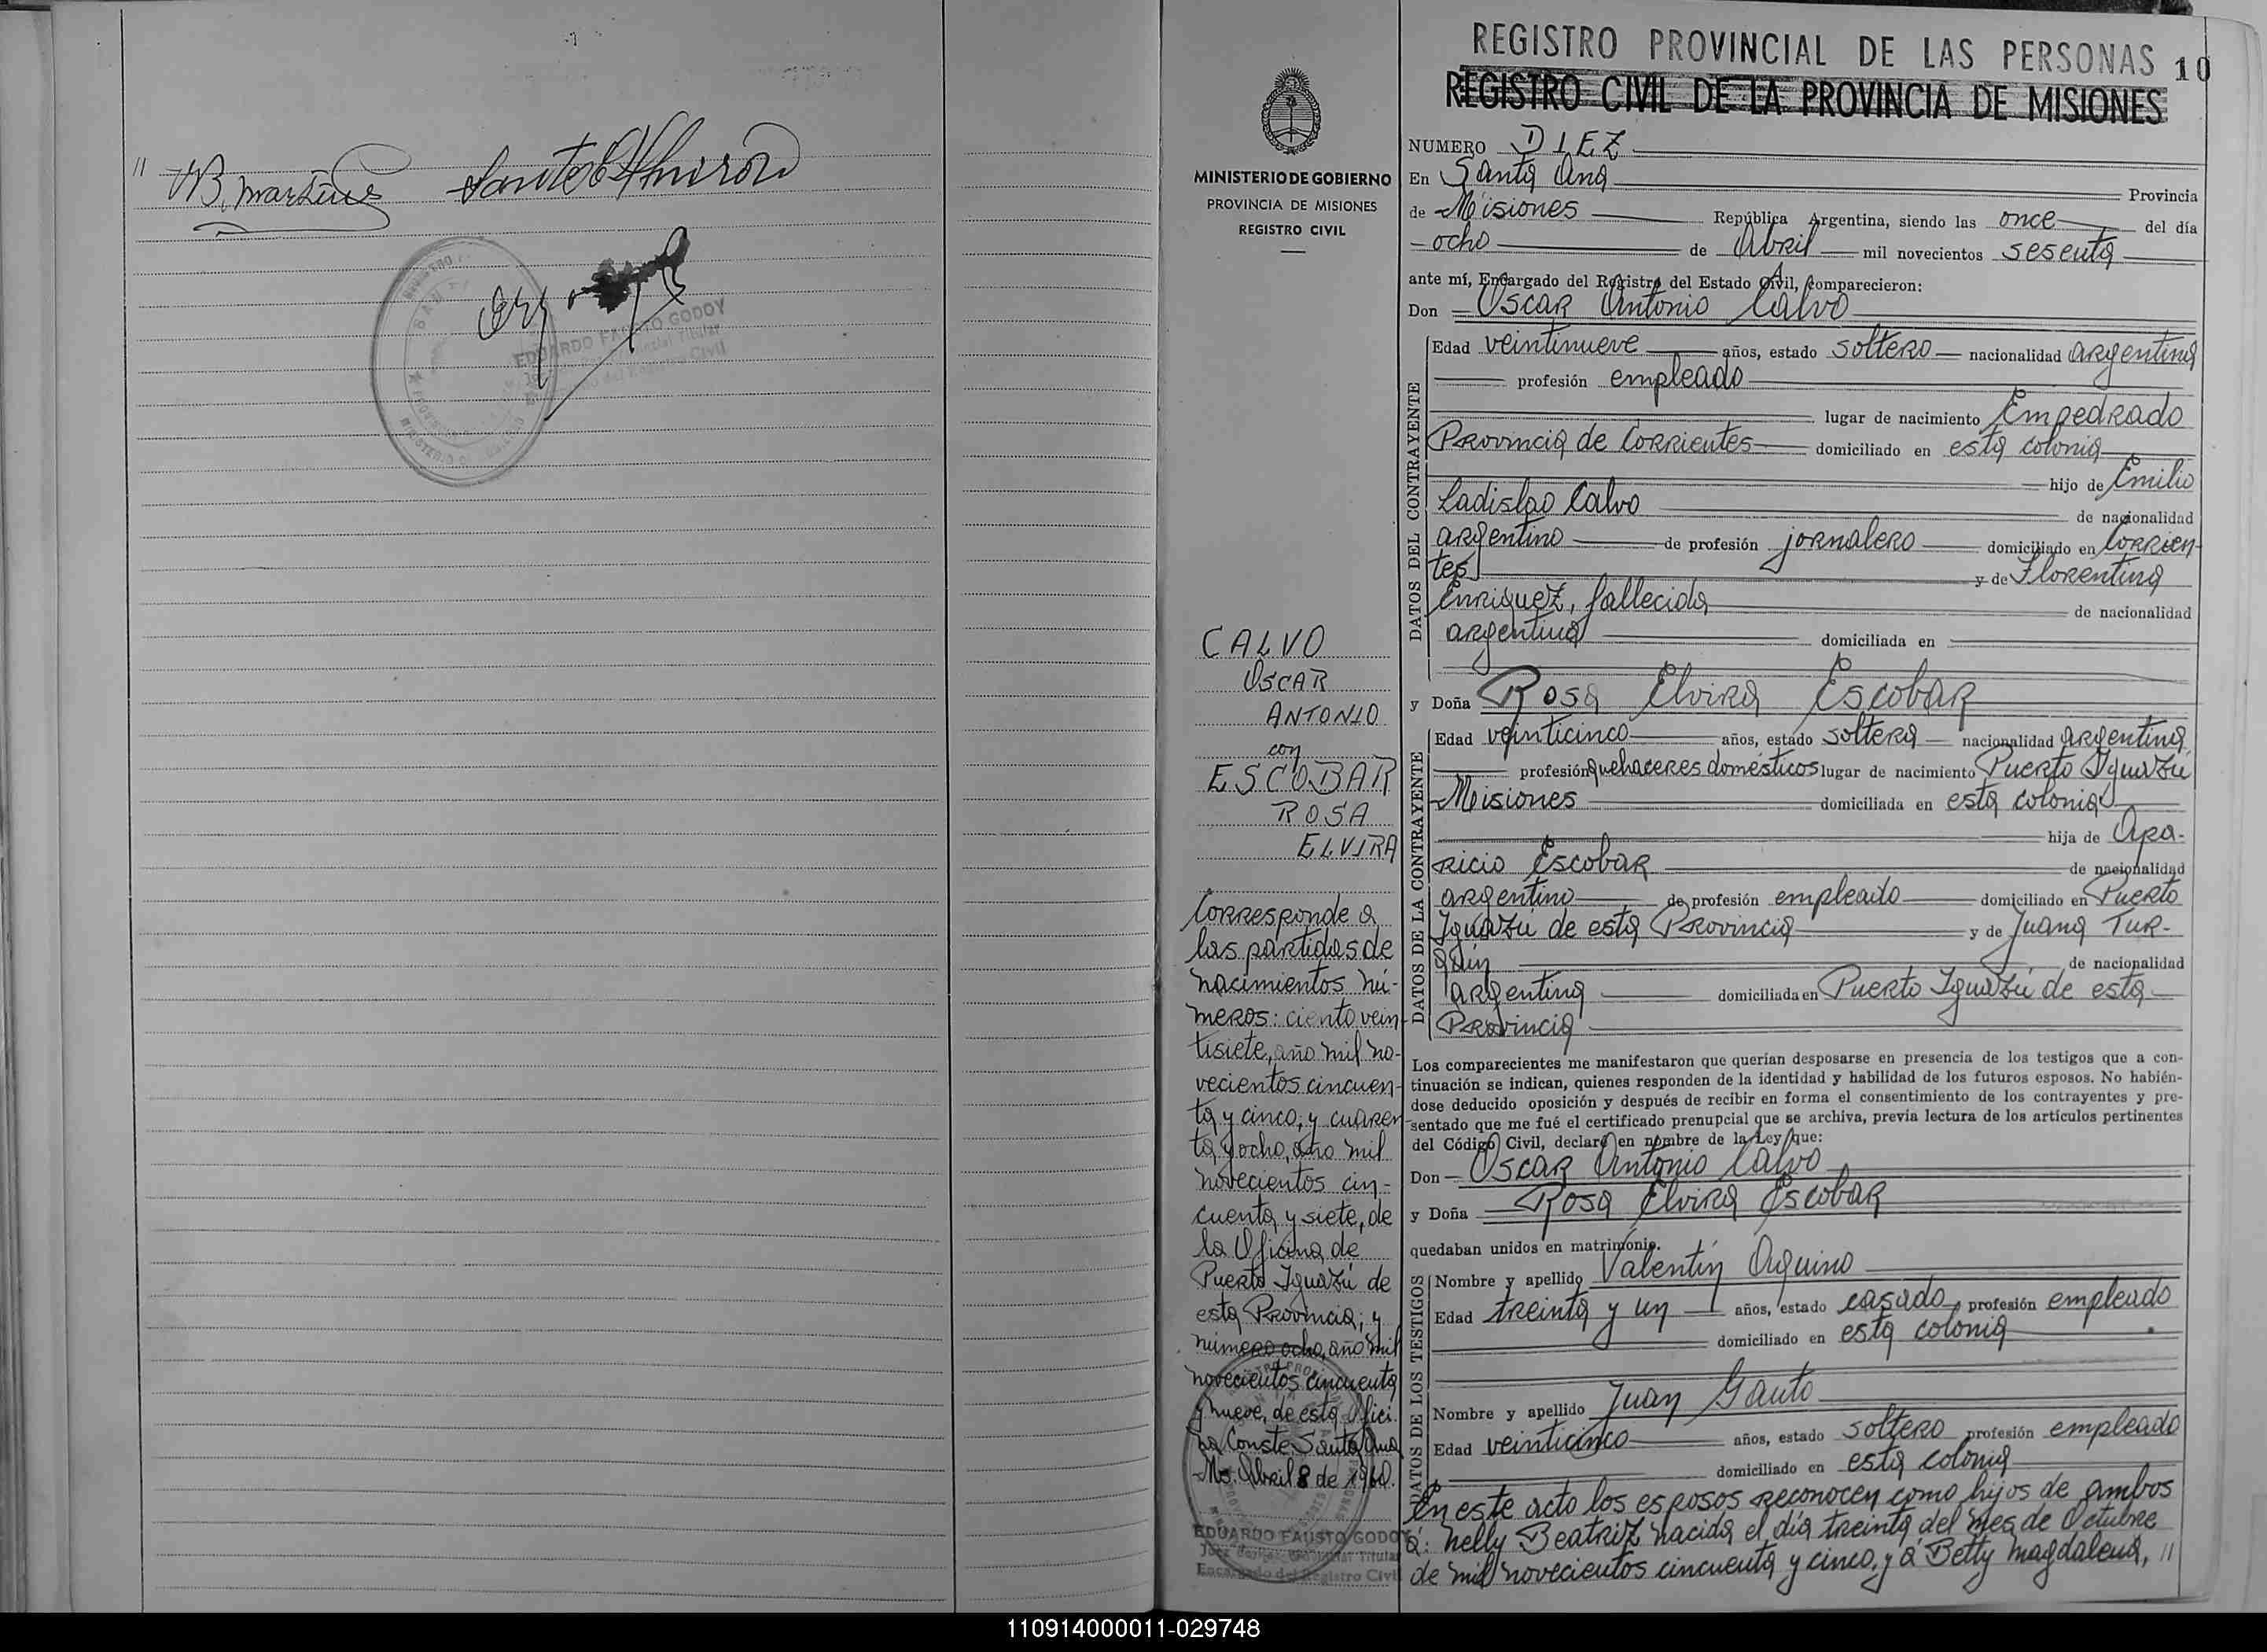 //
B. Martinez
EDUARDO FAUSTO GODOY
10
MINISTERIO DE GOBIERNO
PROVINCIA DE MISIONES
REGISTRO CIVIL
CALVO
OSCAR
ANTONIO
con
ESCOBAR
ROSA
ELVIRA
Corresponde a
las partidas de
nacimientos nú-
meros: ciento vein
tisiete, año mil no-
vecientos cincuen-
ta y cinco, y cuaren
ta y ocho, año mil
novecientos cin-
cuenta y siete, de
la Oficina de
Puerto Iguazú de
esta Provincia; y
número ocho, año mil
novecientos cincuenta
y nueve, de esta Ofici
na Conste. Santa Ana
Ms. Abril 8 de 1960.
EDUARDO FAUSTO GODOY
Encargado del Registro Civil
REGISTRO PROVINCIAL DE LAS PERSONAS
REGISTRO CIVIL DE LA PROVINCIA DE MISIONES
NUMERO DIEZ
En Santa Ana Provincia
de Misiones República Argentina, siendo las once del día
ocho de Abril mil novecientos sesenta
ante mí, Encargado del Registro del Estado Civil, comparecieron:
Don Oscar Antonio Calvo
DATOS DEL CONTRAYENTE
Edad veintinueve años, estado soltero nacionalidad argentina
profesión empleado
lugar de nacimiento Empedrado
Provincia de Corrientes domiciliado en esta colonia
hijo de Emilio
Ladislao Calvo de nacionalidad
argentino de profesión jornalero domiciliado en Corrien-
tes y de Florentina
Enriquez, fallecida de nacionalidad
argentina domiciliada en
y Doña Rosa Elvira Escobar
DATOS DE LA CONTRAYENTE
Edad veinticinco años, estado soltera nacionalidad argentina
profesión quehaceres domésticos lugar de nacimiento Puerto Iguazú
Misiones domiciliada en esta colonia
hija de Apa-
ricio Escobar de nacionalidad
argentino de profesión empleado domiciliado en Puerto
Iguazú de esta Provincia y de Juana Tur-
de nacionalidad
argentina domiciliada en Puerto Iguazú de esta
Provincia
Los comparecientes me manifestaron que querían desposarse en presencia de los testigos que a con-
tinuación se indican, quienes responden de la identidad y habilidad de los futuros esposos. No habién-
dose deducido oposición y después de recibir en forma el consentimiento de los contrayentes y pre-
sentado que me fué el certificado prenupcial que se archiva, previa lectura de los artículos pertinentes
del Código Civil, declaro en nombre de la Ley que:
Don Oscar Antonio Calvo
y Doña Rosa Elvira Escobar
quedaban unidos en matrimonio.
DATOS DE LOS TESTIGOS
Nombre y apellido Valentín Aquino
Edad treinta y un años, estado casado, profesión empleado
domiciliado en esta colonia
Nombre y apellido Juan Gauto
Edad veinticinco años, estado soltero profesión empleado
domiciliado en esta colonia
En este acto los esposos reconocen como hijos de ambos
á: Nelly Beatriz nacida el día treinta del mes de Octubre
de mil novecientos cincuenta y cinco, y á Betty Magdalena, //
110914000011-029748